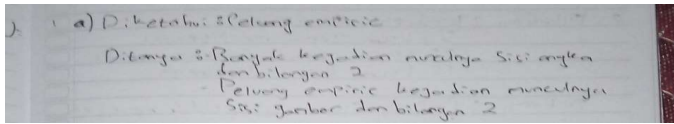 1. a) Diketahui : Peluang empiric
Ditanya : Banyak kejadian munculnya sisi angka
dan bilangan 2
Peluang empiric kejadian munculnya
Sisi gambar dan bilangan 2